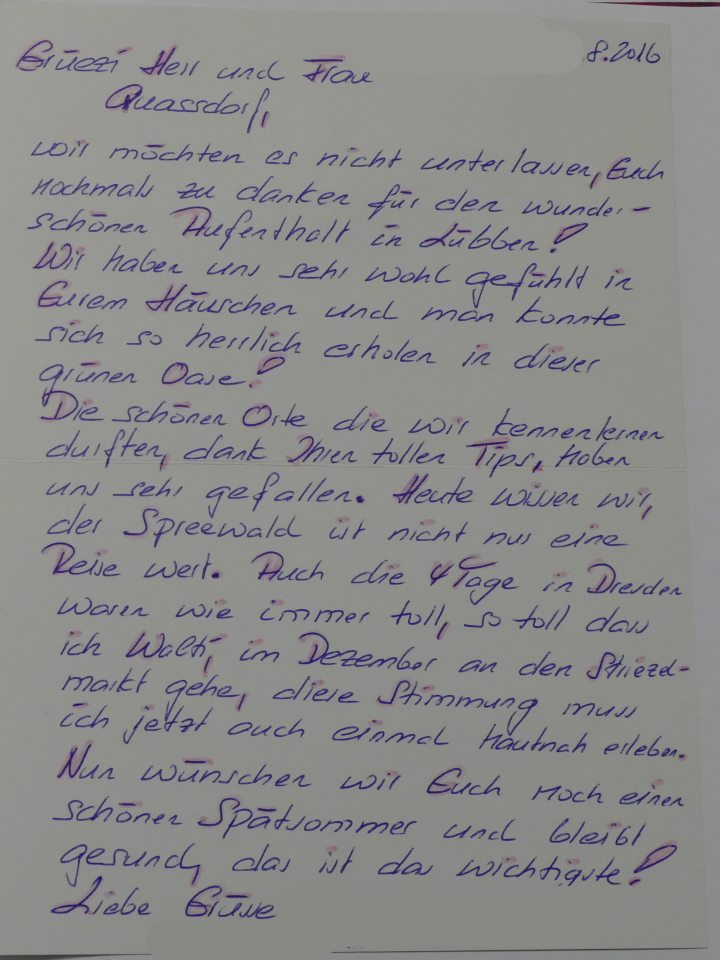 8.2016
Grüezi Herr und Frau
Quassdorf,
wir möchten es nicht unterlassen, Euch
nochmals zu danken für den wunder-
schönen Aufenthalt in Lübben!
Wir haben uns sehr wohl gefühlt in
Eurem Häuschen und man konnte
sich so herrlich erholen in dieser
grünen Oase!
Die schönen Orte die wir kennenlernen
durften, dank Ihren tollen Tips, haben
uns sehr gefallen. Heute wissen wir,
der Spreewald ist nicht nur eine
Reise wert. Auch die 4 Tage in Dresden
waren wie immer toll, so toll dass
ich Walti, im Dezember an den Striezel-
markt gehe, diese Stimmung muss
ich jetzt auch einmal hautnah erleben.
Nun wünschen wir Euch noch einen
schönen Spätsommer und bleibt
gesund, das ist das wichtigste!
Liebe Grüsse